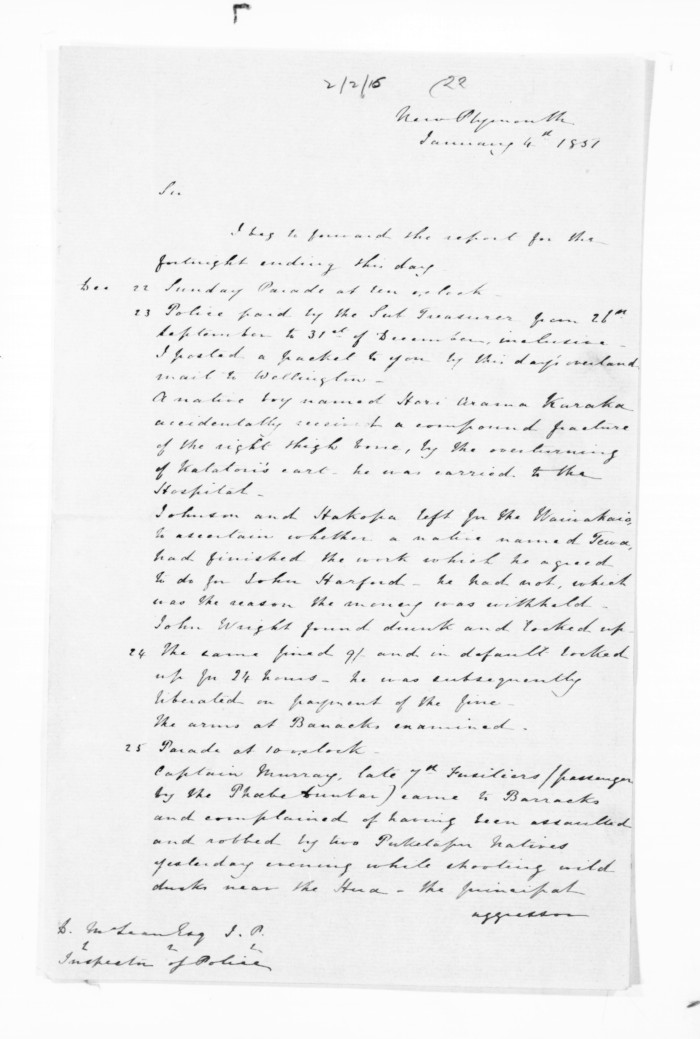 2/2/15 (22
New Plymouth
January 4th 1851
Sir
I beg to forward the report for the
fortnight ending this day
Dec 22 Sunday Parade at ten o,clock -
23 Police paid by the Sub Treasurer from 26th
September to 31st of December, inclusive -
I posted a packet to you by this day's overland
mail to Wellington -
A native boy named Hori Arama Karaka
accidentally received a compound fracture
of the right thigh bone, by the overturning
of Katatore's cart - he was carried to the
Hospital -
Johnson and Hakopa left for the
to ascertain whether a native named Tewa,
had finished the work which he agreed
to do for John Harford - he had not, which
was the reason the money was withheld -
John Wright found drunk and locked up -
24 The same fined 9/- and in default locked
up for 24 hours - he was subsequently
liberated on payment of the fine -
The arms at Barracks examined.
25 Parade at 10 o,clock -
Captain Murray, late 7th Fusiliers (passenger
by the Phoebe Dunbar) came to Barracks
and complained of having been assaulted
and robbed by two Puketapu Natives
yesterday evening while shooting wild
ducks near the Hua - the principal
aggressor
D. McLean Esq J. P.
Inspector of Police